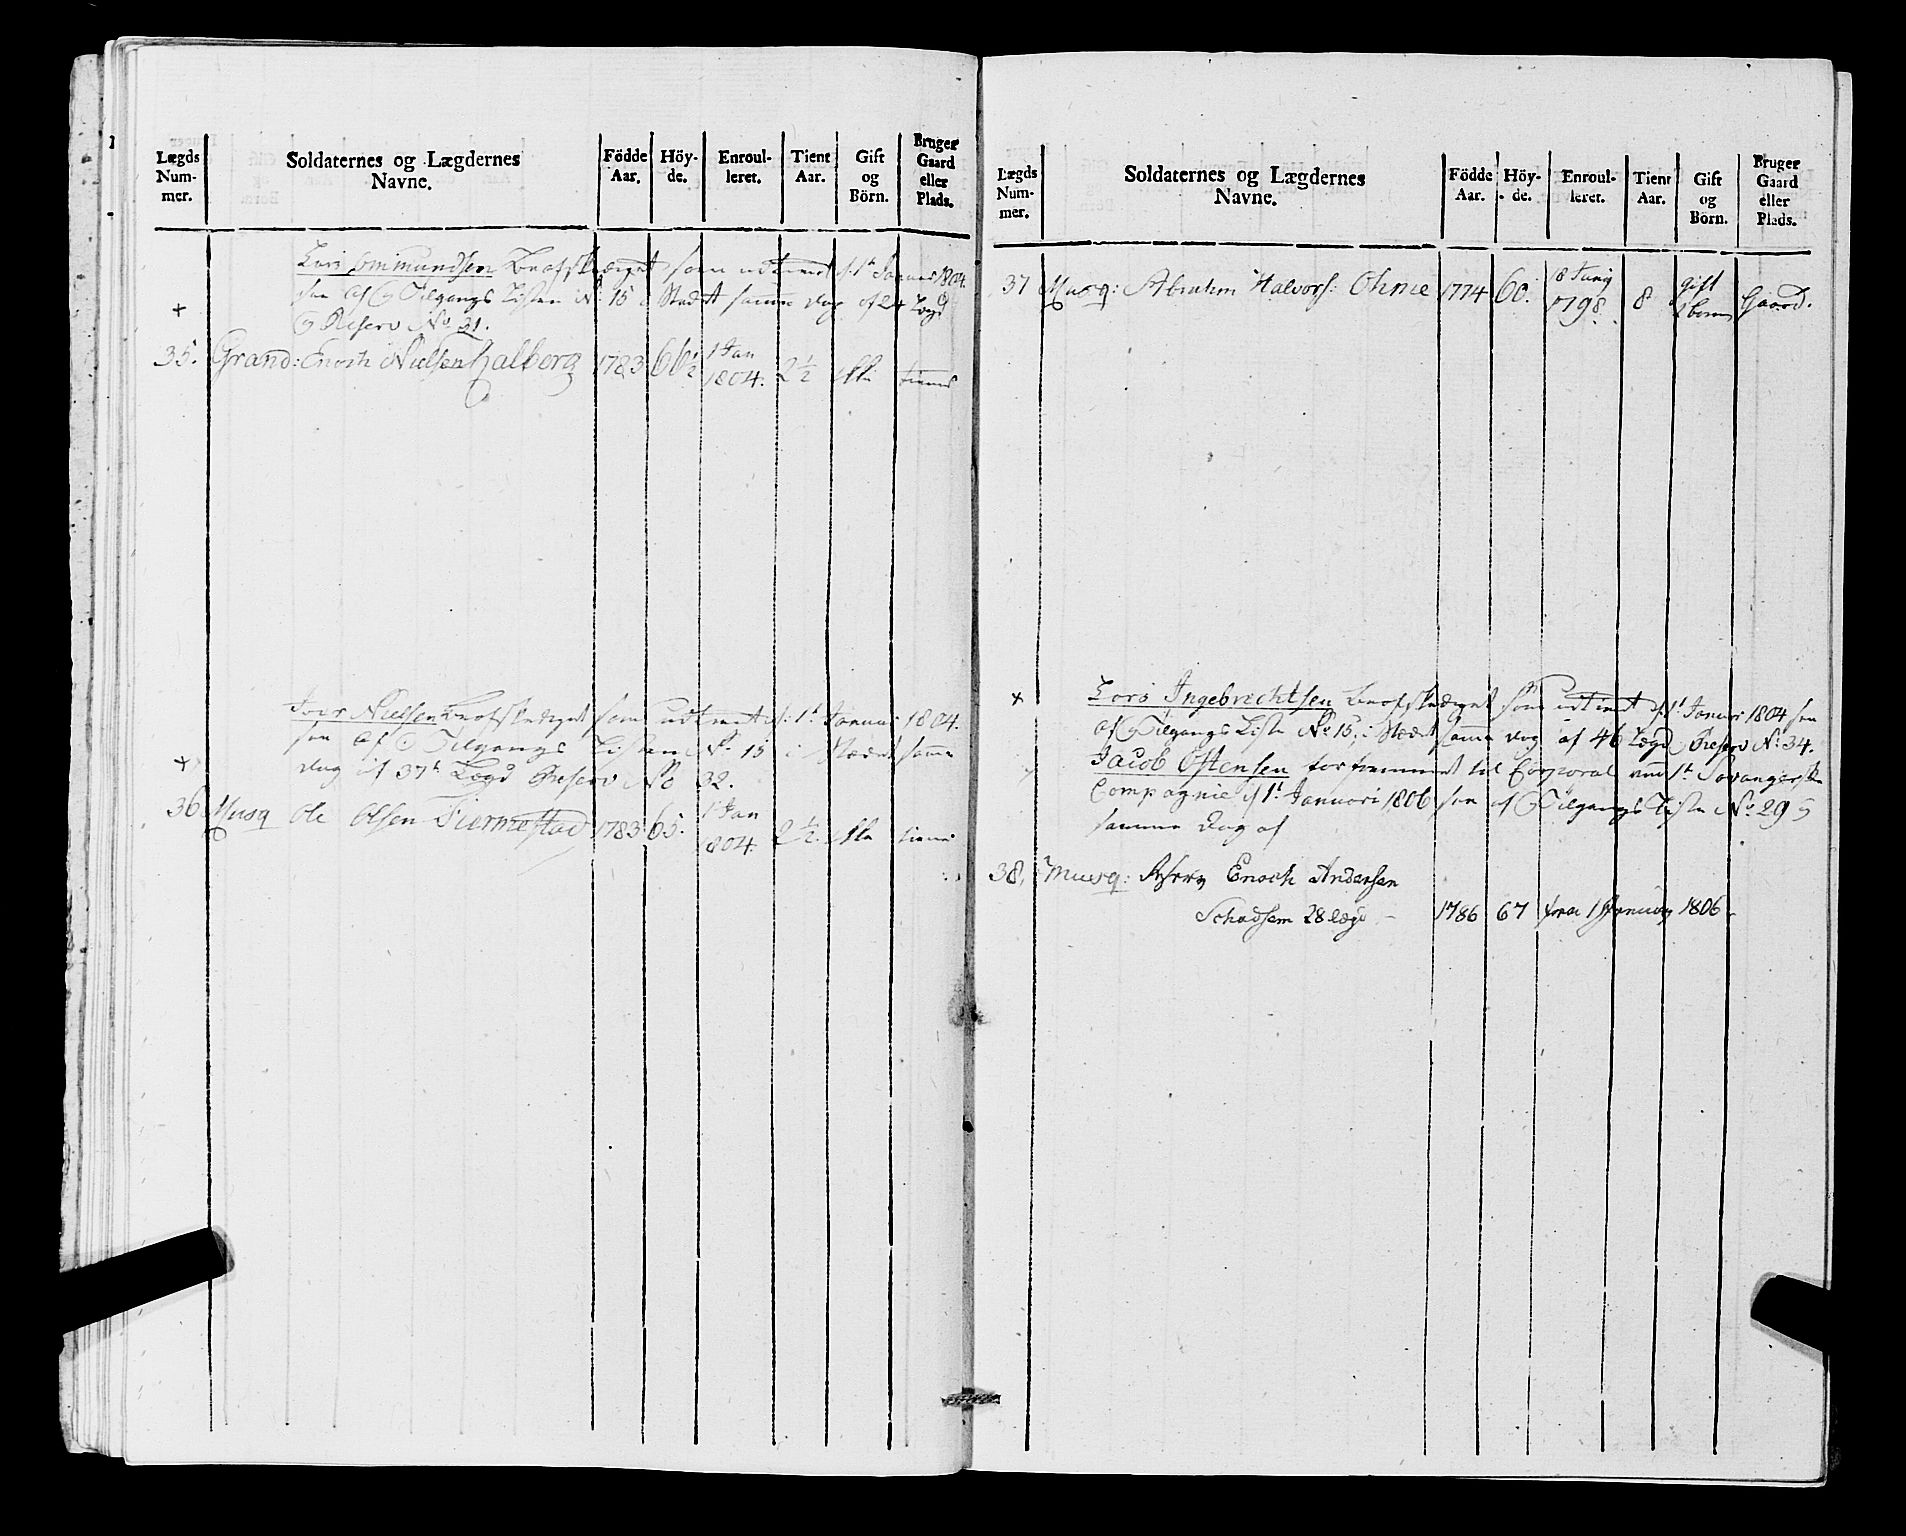 Lægds Num- mer.
Soldaternes og Lægdernes Navne.
Födde Aar.
Höy- de.
Enroul- leret.
Tient Aar.
Gift og Börn.
Bruger Gaard eller Plads.
Lars Ommundsen Beafskeediget som udtient d: 1t Januari 1804.
see Afg Tilgangs Listen No 15 i Stædet samme dag af 24 Lægd
Reserv No 31.
35. Grand: Enoch Nielsen Halberg 1783 66½ 1 Jan 1804. 2½ tiener
Joer Nielsen Beafskediget som udtient d: 1t Januari 1804.
see Af Tilgangs Listen No 15 i Stædet samme
dag af 37t Lægd Reserv No 32.
36 Musq Ole Olsen Tiermestad 1783 65. 1 Jan 1804. 2½ tiener
Lægds Num- mer.
Soldaternes og Lægdernes Navne.
Födde Aar.
Höy- de.
Enroul- leret.
Tient Aar.
Gift og Börn.
Bruger Gaard eller Plads.
37 Musq: Abrahm Halvors: Ohme 1774 60. 18 Juny 1798. 8 gift Gaard.
Lars Ingebrechtsen Beafskediget som udtient d. 1t Januari 1804 see
Af Tilgangs Liste No 15, i Stædet samme dag af 46 Lægd Reserv No 34.
Jacob Ostensen forfremmet til Corporal ved 1t Stavangerske
Compagnie d 1t Januari 1806 see af Tilgangs Liste No 29
samme Dag af
38, Musq: Reserv Enoch Andersen
Schadsem 28 lægd - 1786 67 fra 1 January 1806 -